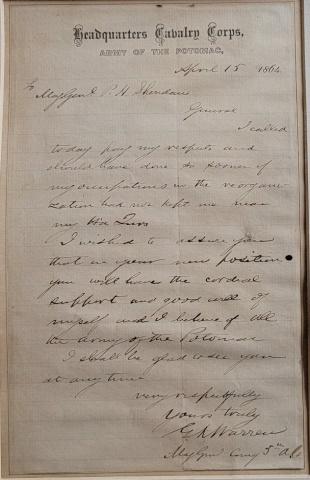 Headquarters Cavalry Corps,
ARMY OF THE POTOMAC,
April 15 1864
To
Maj Genl P. H. Sheridan
General
I called
today pay my respects and
should have done so sooner if
my occupations in the reorgani
zation had not kept me near
my Hd Qurs
I wished to assure you
that in your new position
you will have the cordial
support and good will of
myself and I believe of all
the army of the Potomac
I shall be glad to see you
at any time
very respectfully
yours truly
G K Warren
Maj Genl Comg 5th A.C.